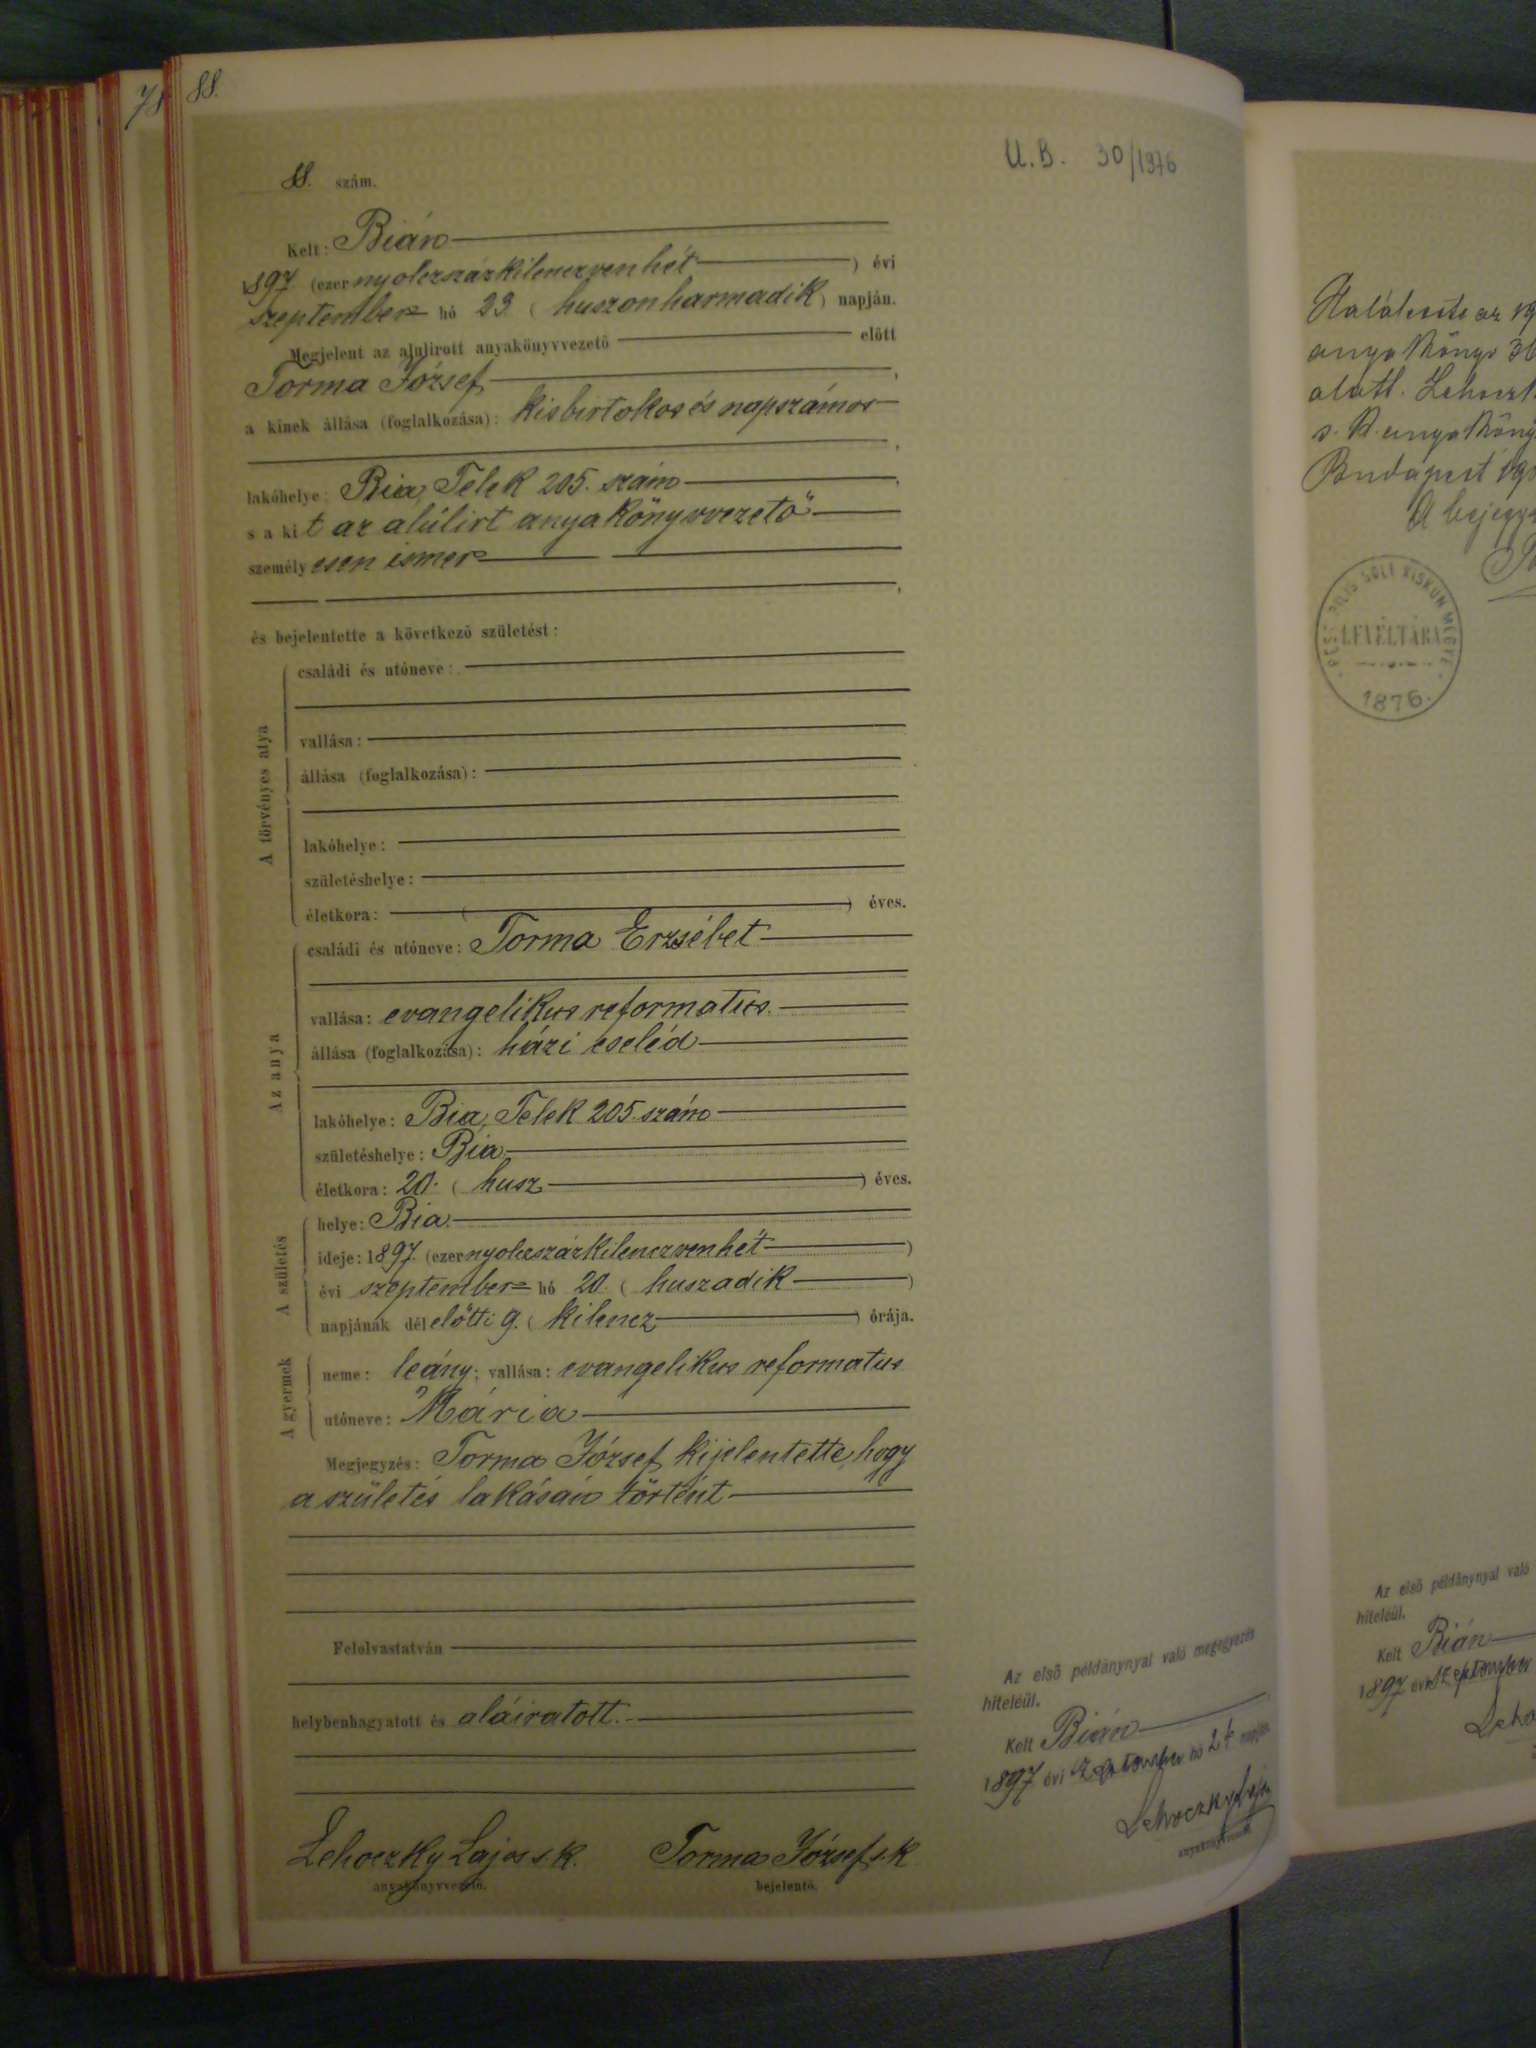 78
88.
88. szám.
U.B. 30/1976
Kelt: Bián
1897 (ezer nyolczszázkilenczvenhét) évi
szeptember hó 23 (huszonharmadik) napján.
Megjelent az alulirott anyakönyvvezető előtt
Torma József,
a kinek állása (foglalkozása): kisbirtokos és napszámos
,
lakóhelye: Bia, Telek 205. szám,
s a kit az alúlirt anyakönyvvezető
személyesen ismer
,
és bejelentette a következő születést:
A törvényes atya
családi és utóneve:
vallása:
állása (foglalkozása):
lakóhelye:
születéshelye:
életkora: ( ) éves.
Az anya
családi és utóneve: Torma Erzsébet
vallása: evangelikus reformatus.
állása (foglalkozása): házi cseléd
lakóhelye: Bia, Telek 205. szám
születéshelye: Bia
életkora: 20. (husz) éves.
A születés
helye: Bia.
ideje: 1897 (ezernyolczszázkilenczvenhét)
évi szeptember hó 20. (huszadik)
napjának délelőtti 9. (kilencz) órája.
A gyermek
neme: leány; vallása: evangelikus reformatus
utóneve: Mária
Megjegyzés: Torma József kijelentette, hogy
a születés lakásán történt
Felolvastatván
helybenhagyatott és aláiratott.
Lehoczky Lajos s. k. Torma József s. k.
anyakönyvvezető. bejelentő.
Az első példánynyal való megegyezés
hiteléül.
Kelt Bián
1897 évi szeptember hó 24 napján
Lehoczky Lajos
anyakönyvvezető.
az 19
anyakönyv
alatt.
s. k. anyaköny
Budapest 19
A bejegyz
PEST PILIS SOLT KISKUN MEGYE
LEVÉLTÁRA
1876.
Az első példánynyal való
hiteléül.
Kelt Bián
1897 évi szeptember
Leho